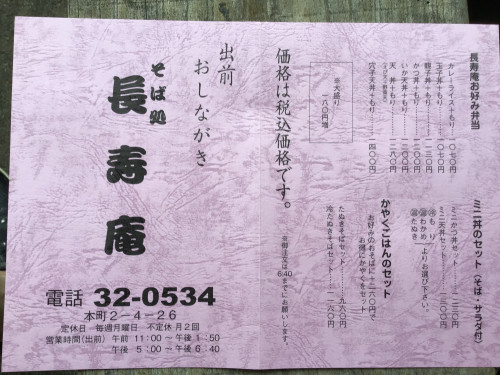 長寿庵お好み弁当
カレーライス+もり……一〇七〇円
玉子丼+もり……一〇七〇円
親子丼+もり……一一三〇円
かつ丼+もり……一二〇〇円
いか天丼+もり……一二〇〇円
天丼+もり……一二八〇円
穴子天丼+もり……一四〇〇円
※大盛り
一八〇円増
ミニ丼のセット（そば・サラダ付）
ミニかつ丼セット
ミニ天丼セット
よりお選び下さい。
かやくごはんのセット
お好みのおそばに+二六〇円で
お得にかやくをセット
たぬきそばセット……九六〇円
冷たぬきそばセット
価格は税込価格です。
※御注文は6:40までにお願いします。
出前
おしながき
そば処
長寿庵
電話 32-0534
本町2-4-26
定休日 毎週月曜日 不定休 月2回
営業時間(出前) 午前 11:00〜午後 1:50
午後 5:00〜午後 6:40